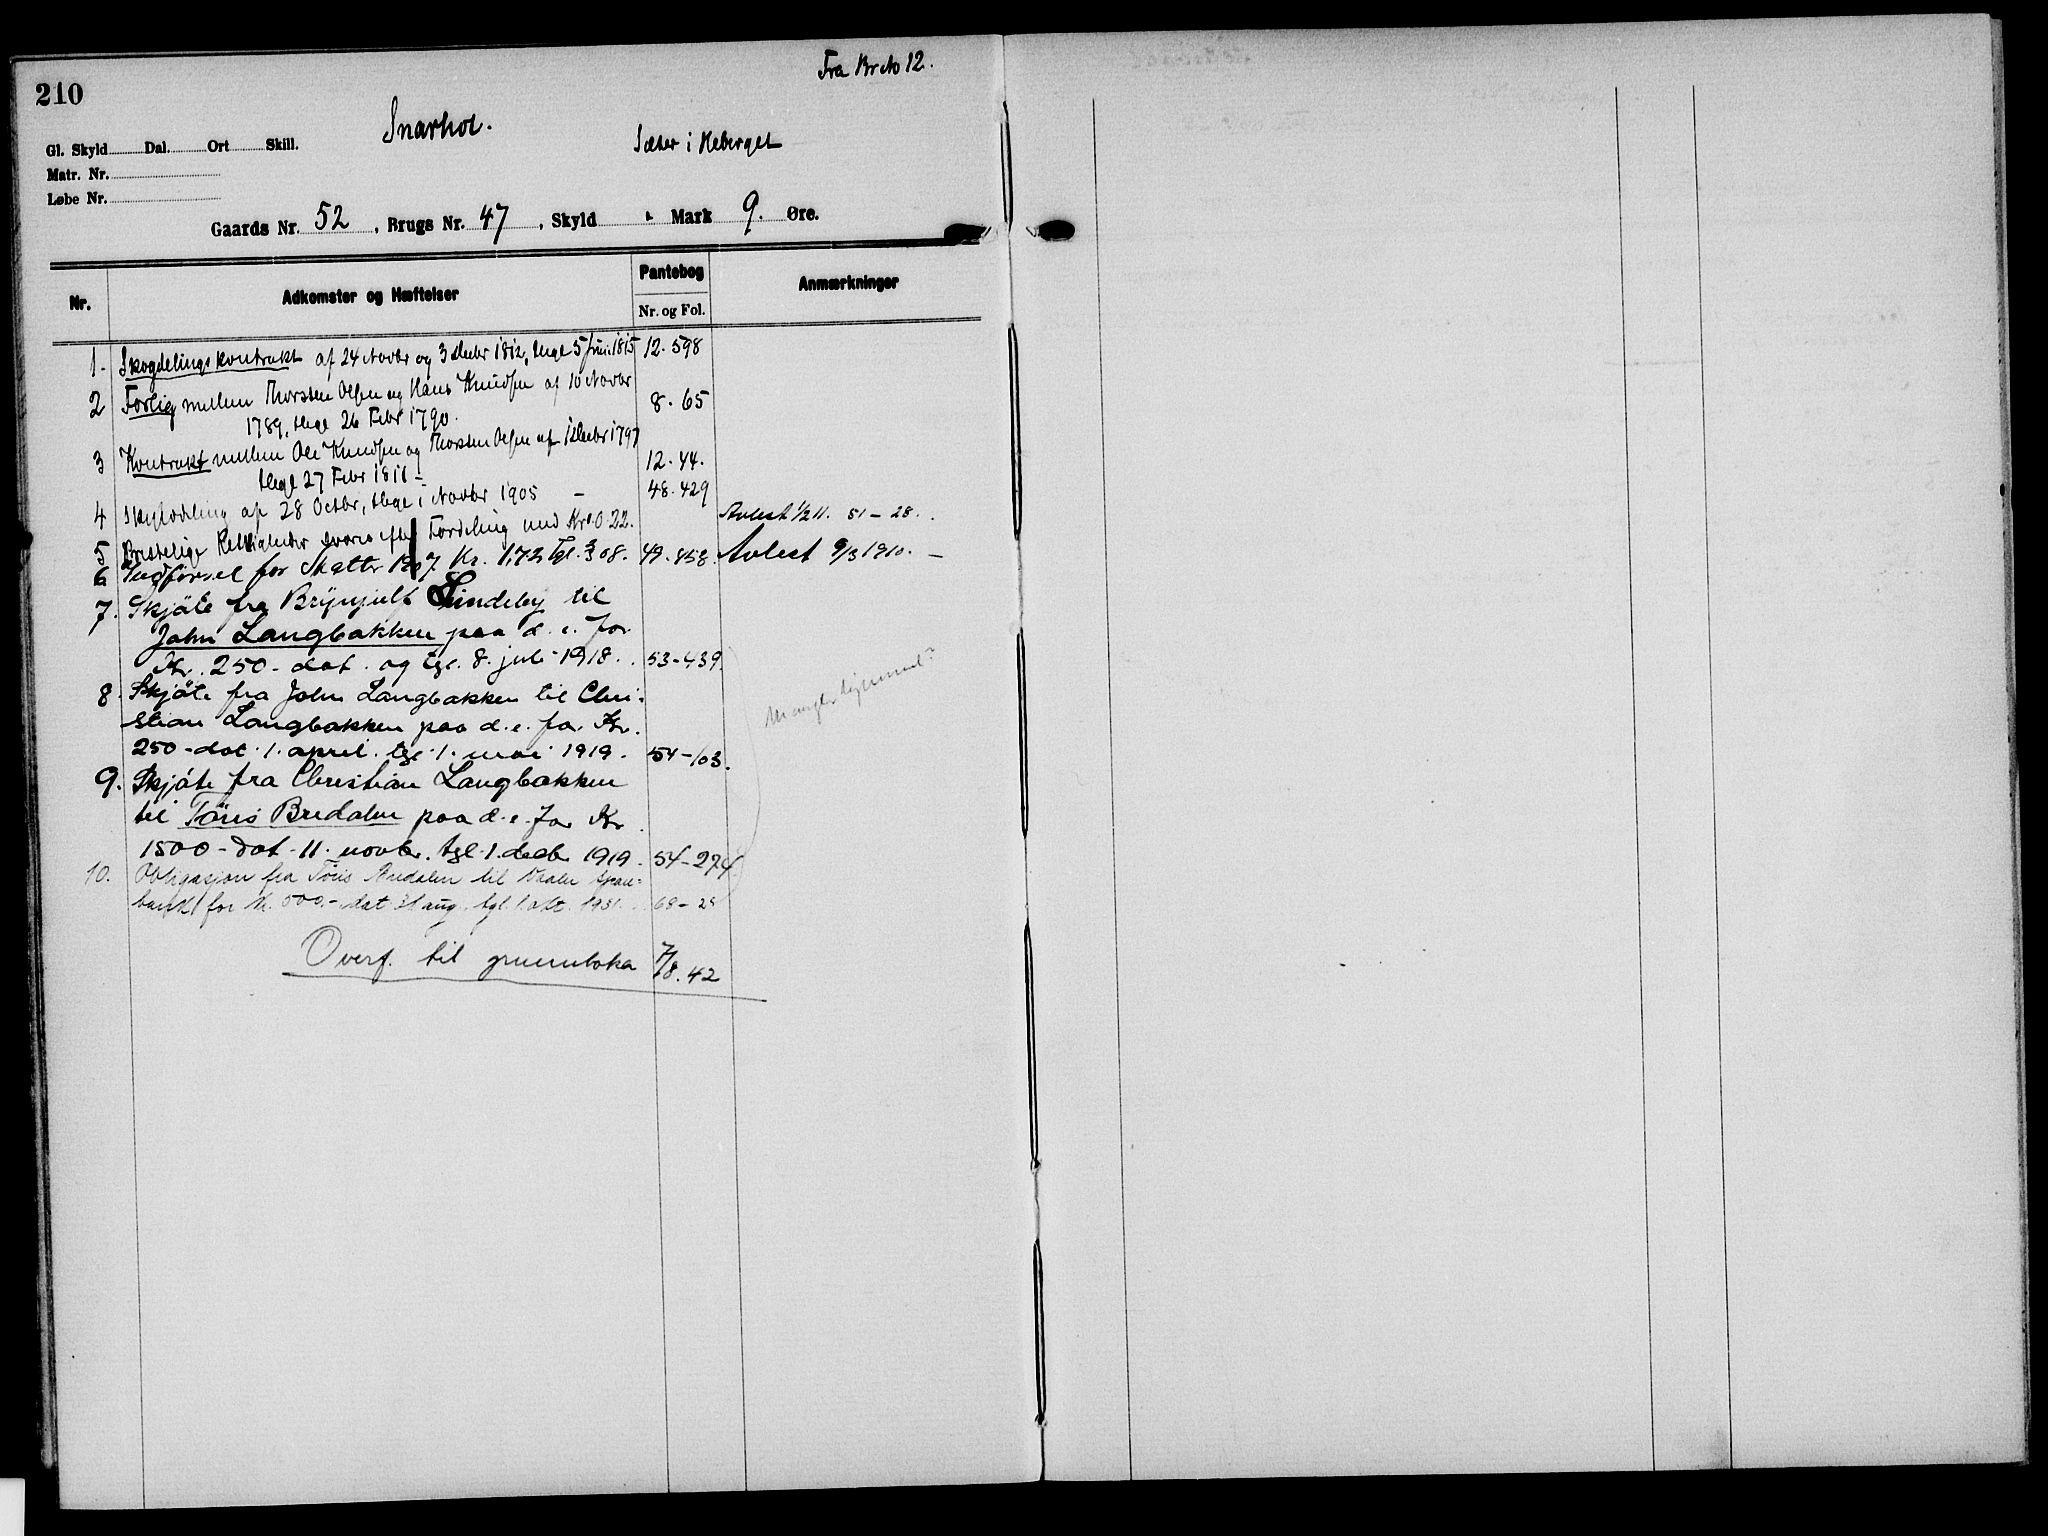 210
Fra Br No 12.
Snarhol.
Sæter i Heberget
Gl. Skyld Dal. Ort Skill.
Matr. Nr.
Løbe Nr.
Gaards Nr. 52, Brugs Nr. 47, Skyld Mark 9. Øre.
Nr. Adkomster og Hæftelser Pantebog Nr. og Fol. Anmærkninger
1. Skogdelingskontrakt af 24 Novbr og 3 Decbr 1812, thgl 5 Juni 1815 12.598
2 Forlig mellem Thorsten Olsen og Hans Knudsen af 10 Novbr
1789, thgl 26 Febr 1790. 8.65
3 Kontrakt mellem Ole Knudsen og Thorsten Olsen af 1 Decbr 1797
thgl 27 Febr 1811 - 12.44.
4 Skylddeling af 28 Octbr, thgl 1 Novbr 1905 - 48.429
5 svares efter Fordeling med Kr. 0.22. Avlest 1/2 11. 51-28.
6 Udførsel for Skatter 1907 Kr. 1,72 Tgl. 3/3 08. 49.458. Avlest 9/3 1910. -
7. Skjöte fra Brynjulf Lindeby til
John Langbakken paa d. e. for
Kr. 250- dat. og tgl. 8. juli 1918. 53-439.
8. Skjöte fra John Langbakken til Chri-
stian Langbakken paa d. e. for Kr.
250- dat. 1. april. tgl. 1. mai 1919. 54-103.
9. Skjöte fra Christian Langbakken
til Töris Bredalen paa d. e. for Kr.
1500- dat. 11. novbr. tgl. 1. decbr 1919. 54-274
10. Obligasjon fra Töris Bredalen til Spare-
bank for kr. 500.- dat 31 aug. tgl. 1. okt. 1931. 68-25
Overf. til grunnboka 7/8.42